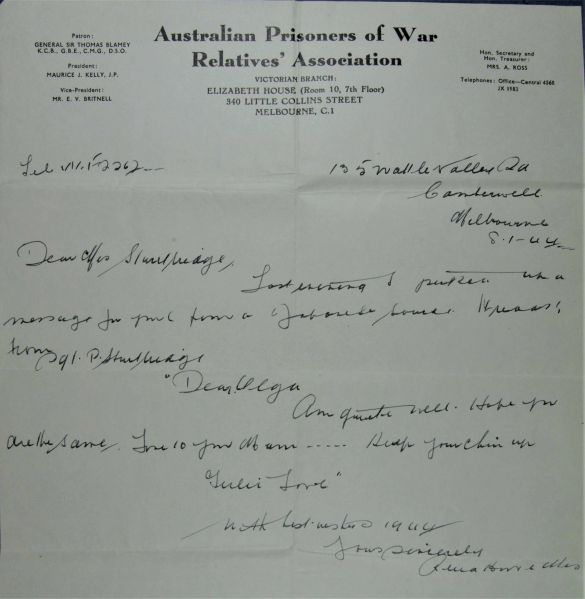 Patron:
GENERAL SIR THOMAS BLAMEY
K.C.B., G.B.E., C.M.G., D.S.O.
President:
MAURICE J. KELLY, J.P.
Vice-President:
MR. E. V. BRITNELL
Australian Prisoners of War
Relatives' Association
VICTORIAN BRANCH:
ELIZABETH HOUSE (Room 10, 7th Floor)
340 LITTLE COLLINS STREET
MELBOURNE, C.1
Hon. Secretary and
Hon. Treasurer:
MRS. A. ROSS
Telephones: Office—Central 4560
JX 1983
135 Wattle Valley Rd
Camberwell
Melbourne
8.1.44
Dear Mrs
Last evening I picked up a
message for you from a Japanese source. It reads:
from Sgt.
"Dear Olga
Am quite well. Hope you
are the same. Love to you & Mam ..... Keep your chin up
Love"
With best wishes 1944
Yours sincerely